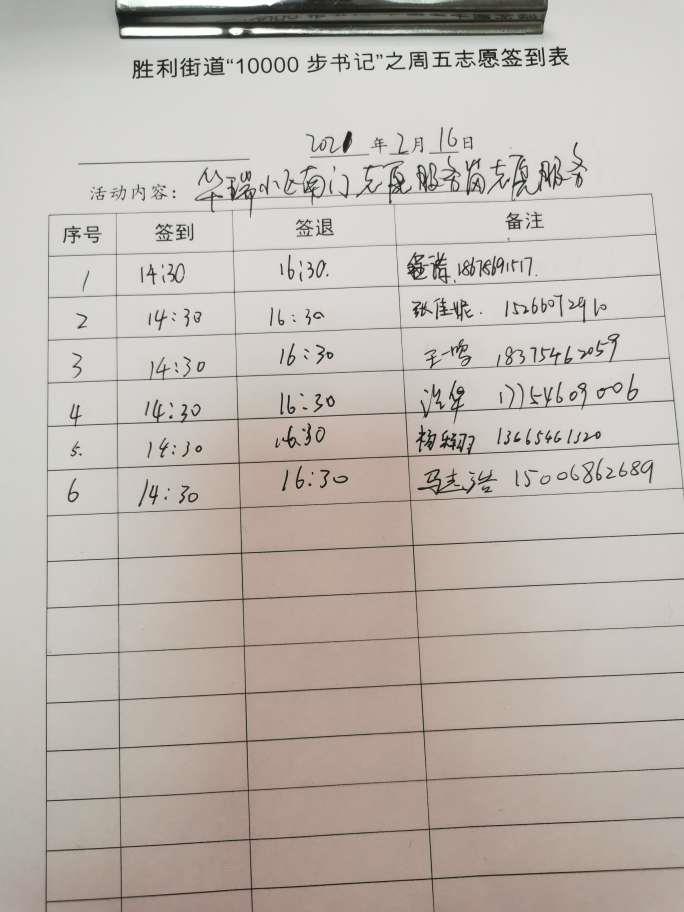 胜利街道“10000步书记”之周五志愿签到表
2021年2月16日
活动内容：华瑞小区南门志愿服务岗志愿服务
序号 签到 签退 备注
1 14:30 16:30. 18678691517.
2 14:30 16:30 张佳妮. 15266072910
3 14:30 16:30 王一鸣 18375462059
4 14:30 16:30 17754609006
5. 14:30 16:30 杨翔羽 13665461320
6 14:30 16:30 马志浩 15006862689